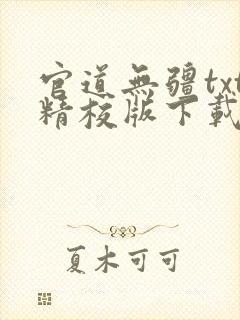 官道無疆txt
精校版下載
夏木可可